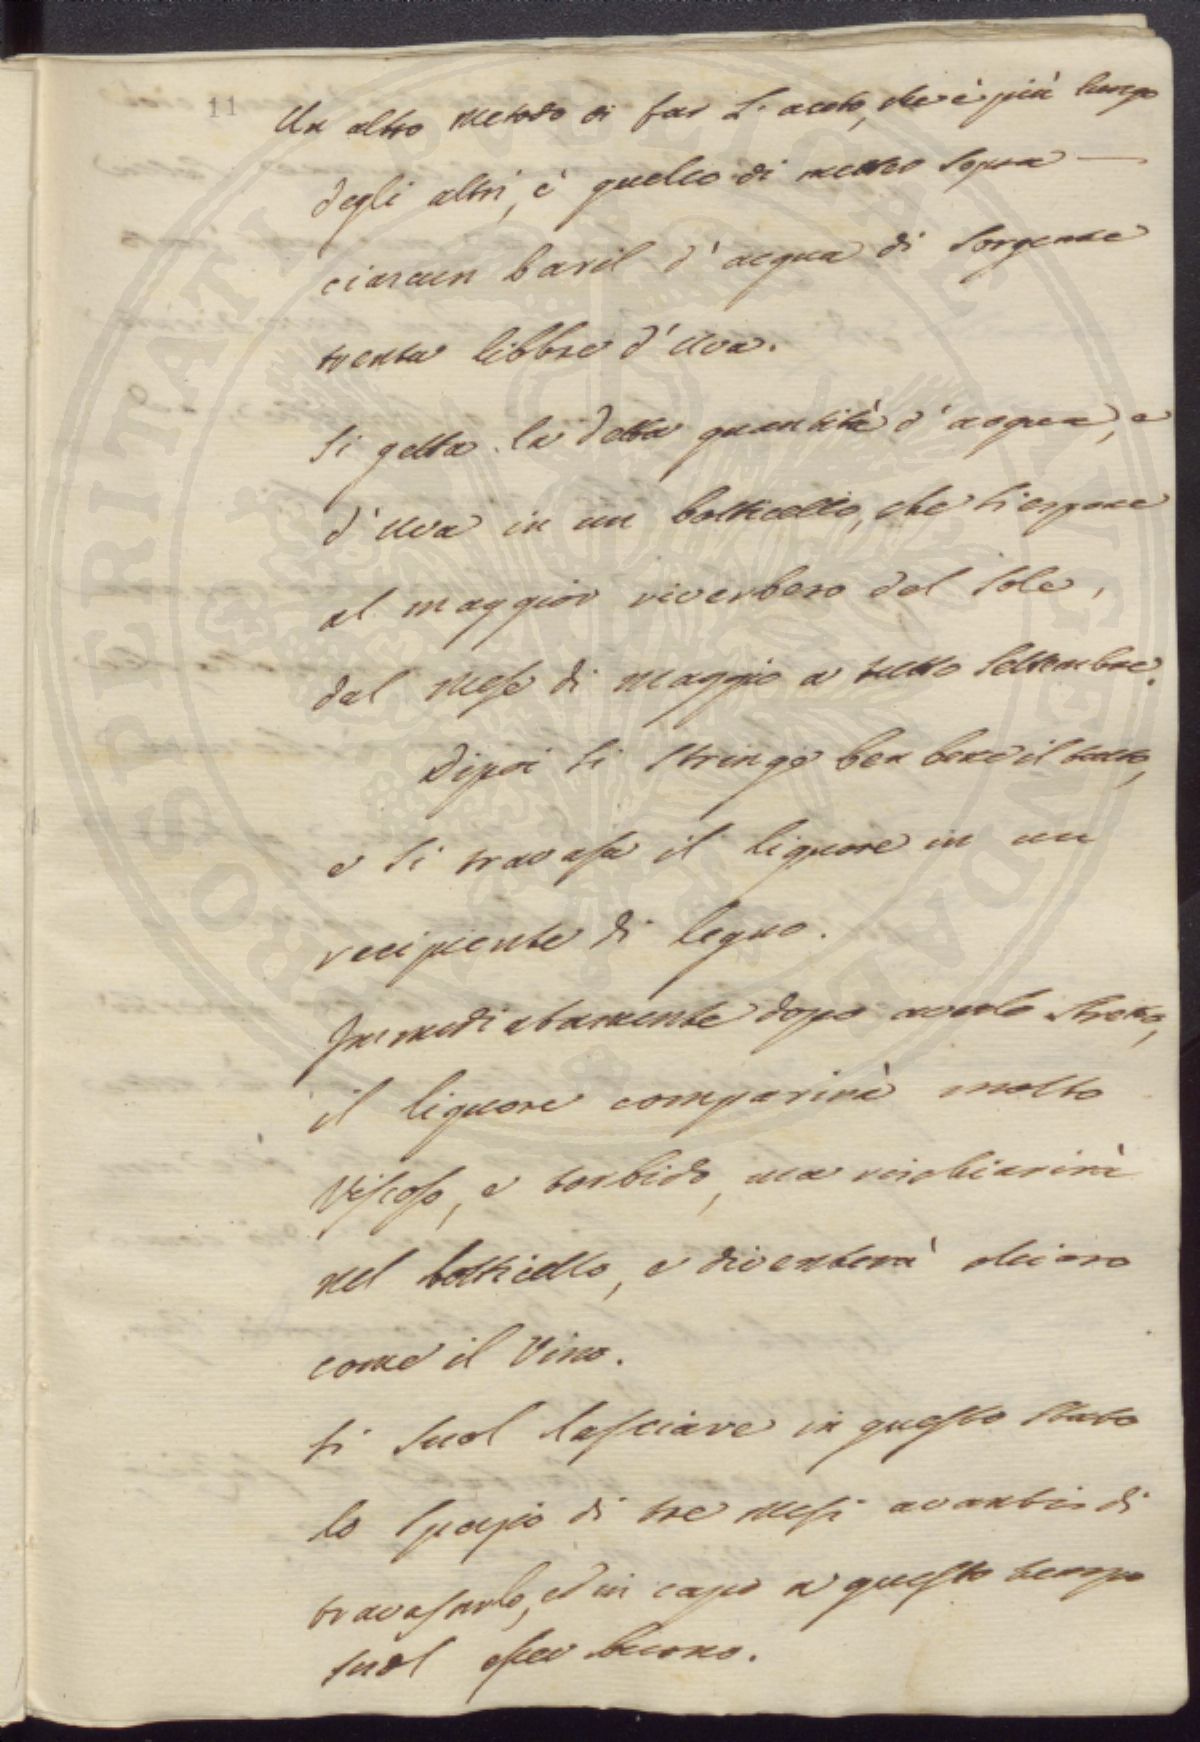 11
Un altro metodo di far L'aceto, che è più lungo
degli altri, è quello di metter sopra —
ciascun baril d'acqua di sorgente
trenta libbre d'Uva.
Si getta la detta quantità d'acqua, e
d'Uva in un botticello, che si espone
al maggior riverbero del sole,
dal mese di maggio a tutto Settembre.
Dipoi si stringe ben bene il tutto,
e si travasa il liquore in un
recipiente di legno.
Immediatamente dopo averlo stretto,
il liquore comparirà molto
Viscoso, e torbido, ma rischiarirà
nel botticello, e diventerà chiaro
come il Vino.
Si suol lasciare in questo stato
lo spazio di tre mesi avanti di
travasarlo, ed in capo a questo tempo
suol esser buono.
PROSPERITATI PUBLICAE AUGENDAE